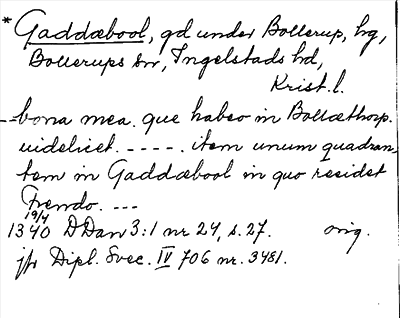 * Gaddæbool, gd under Bollerup, hg,
Bollerups sn, Ingelstads hd,
Krist. l.
--bona mea. que habeo in Bollæthorp.
uidelicet. - - - - . item unum quadran,
tem in Gaddæbool in quo residet
Frendo. ---
19/4
1340 DDan 3:1 nr 24, s. 27. orig.
jfr Dipl. Svec. IV 706 nr. 3481.